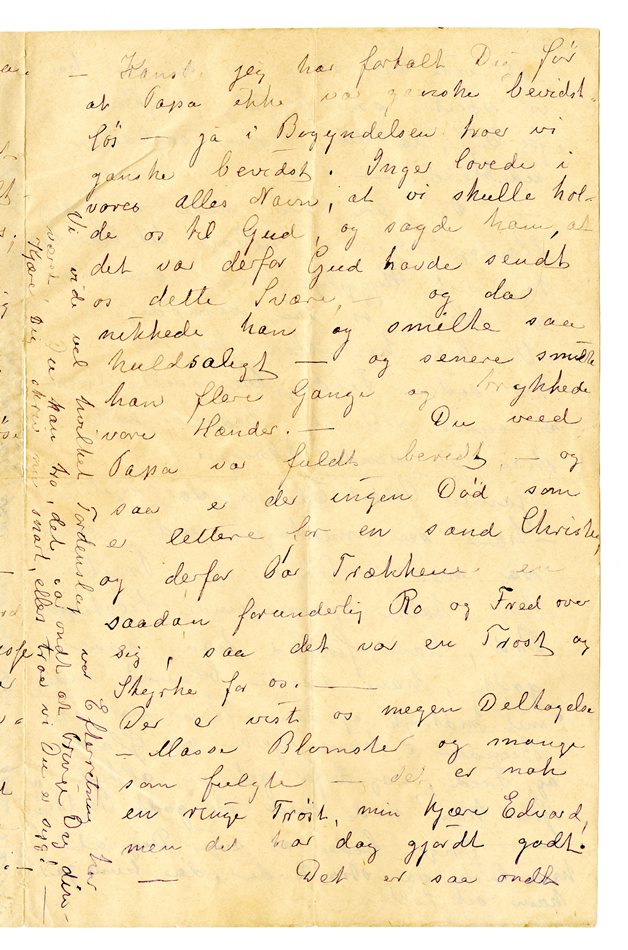 — Kanske jeg har fortalt Dig før
at Papa ikke var ganske bevidst-
løs — ja i Begyndelsen troer vi
ganske bevidst. Inger lovede i
vores alles Navn, at vi skulle hol-
de os til Gud, og sagde ham, at
det var derfor Gud havde sendt
os dette Svære, — og da
nikkede han og smilte saa
huldsaligt — og senere smilte
han flere Gange og trykkede
vore Hænder. — Du veed
Papa var fuldt bevidst, — og
saa er der ingen Død som
er lettere for en sand Christen,
og derfor var Trækkene en
saadan forunderlig Ro og Fred over
sig, saa det var en Trøst og
Styrke for os. —
Der er vist os megen Deltagelse
— Masse Blomster og mange
som fulgte — det er nok
en ringe Trøst, min kjære Edvard,
men det har dog gjørdt godt.
— Det er saa ondt
Vi vide vel hvilket Tordenslag vor Efterretning har
været, Du kan tro, det var ondt at bringe Dig den
Kjære Dig skriv nu snart, ellers troe vi Du er syg! —